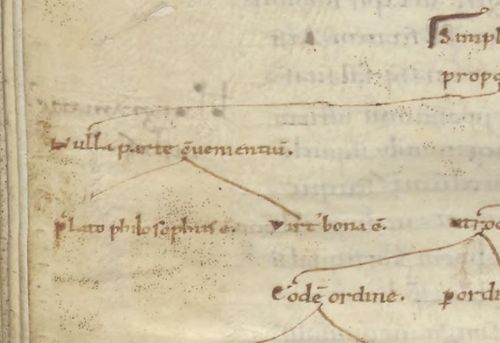 Simpl
propo
Nulla parte cōuenientiū.
plato philosophus ē. virt᾽ bona ē. utro
Eodē ordine. p ordi